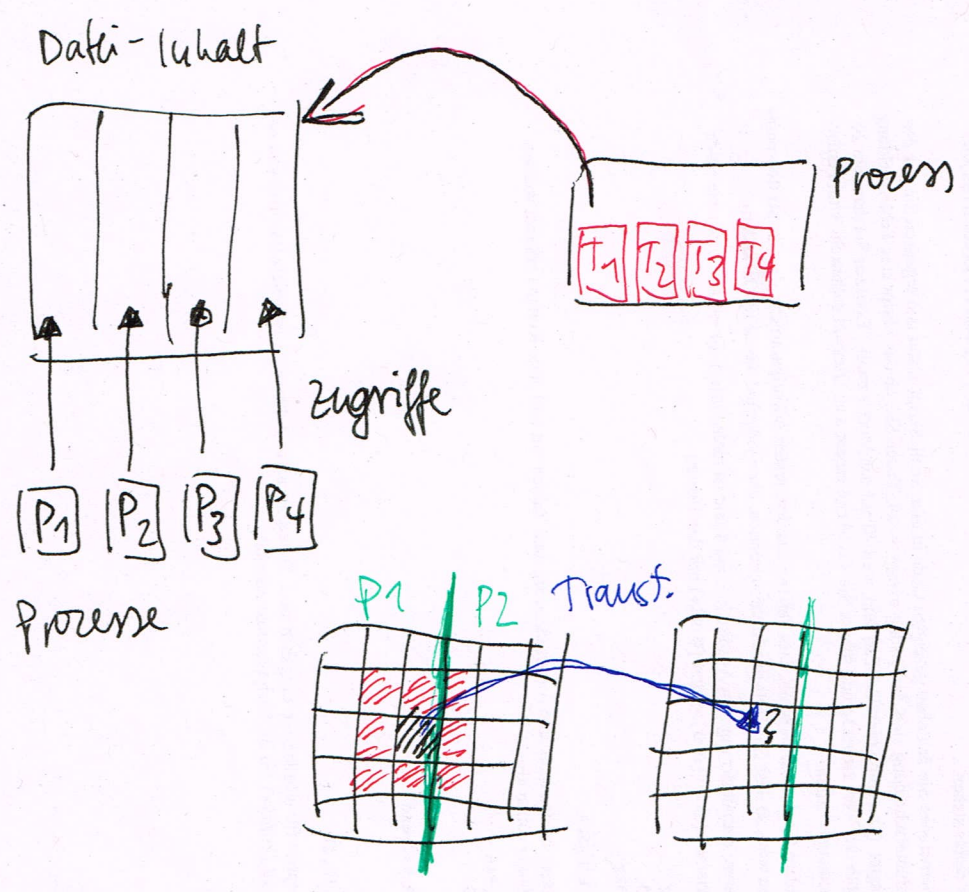 Datei-Inhalt
Prozess
T1 T2 T3 T4
Zugriffe
P1 P2 P3 P4
Prozesse
P1 P2 Transf.
?